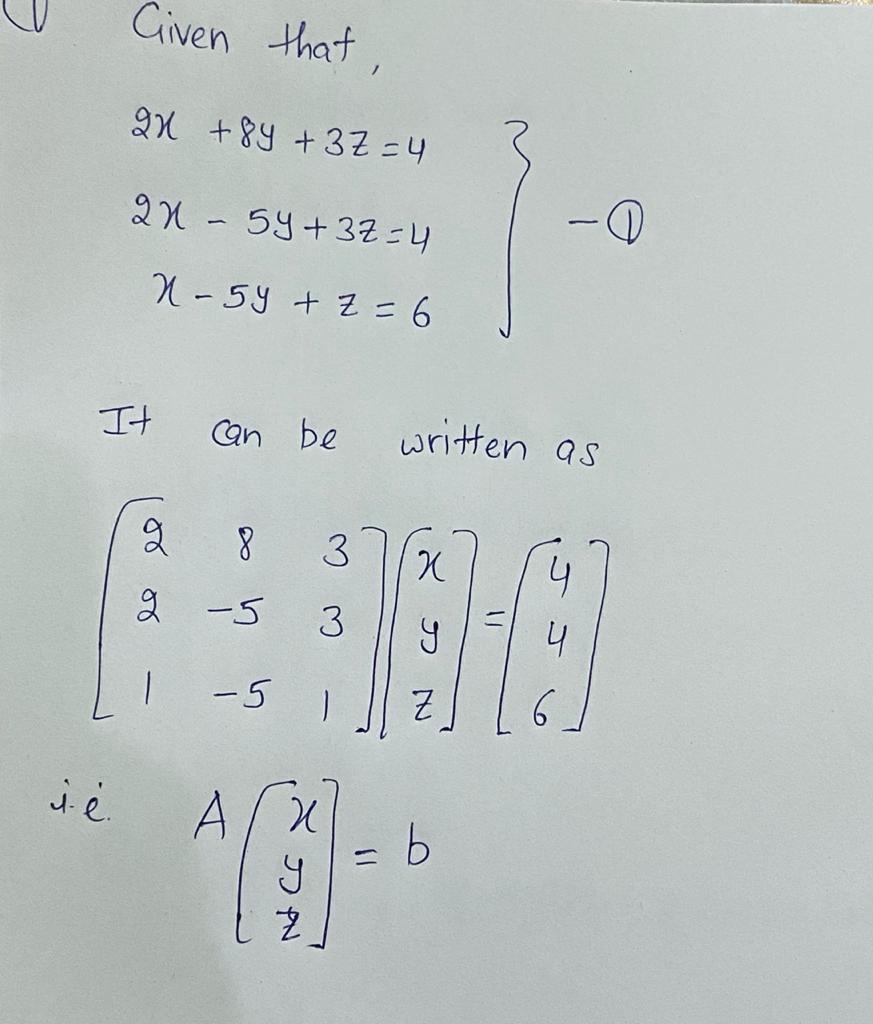 ① Given that,
2x + 8y + 3z = 4
2x - 5y + 3z = 4 } - ①
x - 5y + z = 6
It can be written as
[2 8 3] [x] = [4]
[2 -5 3] [y] [4]
[1 -5 1] [z] [6]
i.e. A [x] = b
[y]
[z]